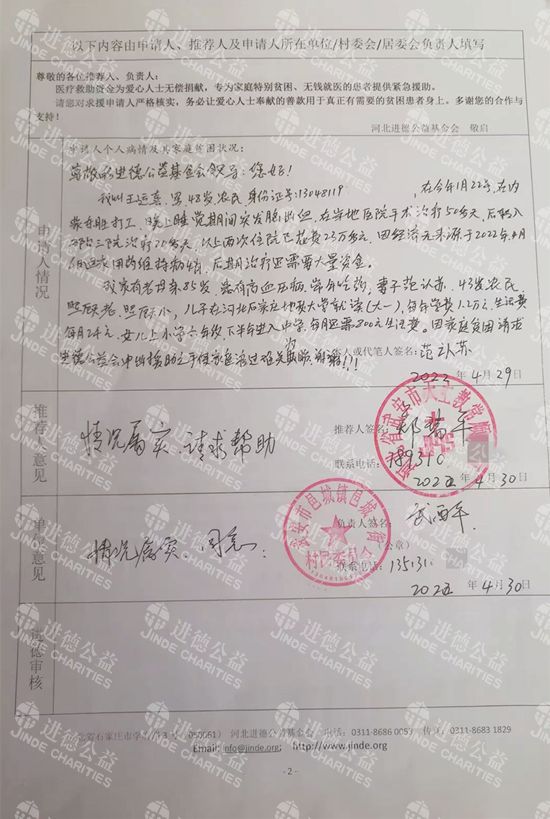 以下内容由申请人、推荐人及申请人所在单位/村委会/居委会负责人填写
尊敬的各位推荐人、负责人:
医疗救助资金为爱心人士无偿捐献,专为家庭特别贫困、无钱就医的患者提供紧急援助。
请您对求援申请人严格核实,务必让爱心人士奉献的善款用于真正有需要的贫困患者身上。多谢您的合作与
支持!
河北进德公益基金会 敬启
申请人情况
申请人个人病情及其家庭贫困状况:
尊敬的进德公益基金会领导:您好!
我叫王运喜,男48岁农民 身份证号:13048119 ,在今年1月22号,在内
蒙 打工,晚上睡觉期间突发脑出血,在当地医院手术治疗50余天,后转入
院治疗20余天,以上两次住院已花费23万余元,因经济无来源于2022年4月
后期治疗还需要大量资金。
我家有老母亲85岁,患有高血压病,常年吃药,妻子范认苏,43岁农民,
照顾老,照顾小,儿子在河北 大学就读(大一),每年学费1.2万元,生活费
每月2千元,女儿上小学六年级,下半年进入中学,每月还需800元生活费。因家庭贫困请求
进德公益会 援助之手使家庭渡过难关 谢谢!!!
或代笔人签名:范认苏
2022年4月29日
推荐人意见
情况属实、请求帮助
推荐人签名:
联系电话:189310
2022年4月30日
单位意见
情况属实、同意:
负责人签名:武西平
(公章)
联系电话:135131
2022年4月30日
村民委员会
进德审核
(050061) 河北进德公益基金会 电话:0311-8686 0059 传真:0311-8683 1829
Email: info@jinde.org; http://www.jinde.org
- 2 -
进德公益
JINDE CHARITIES